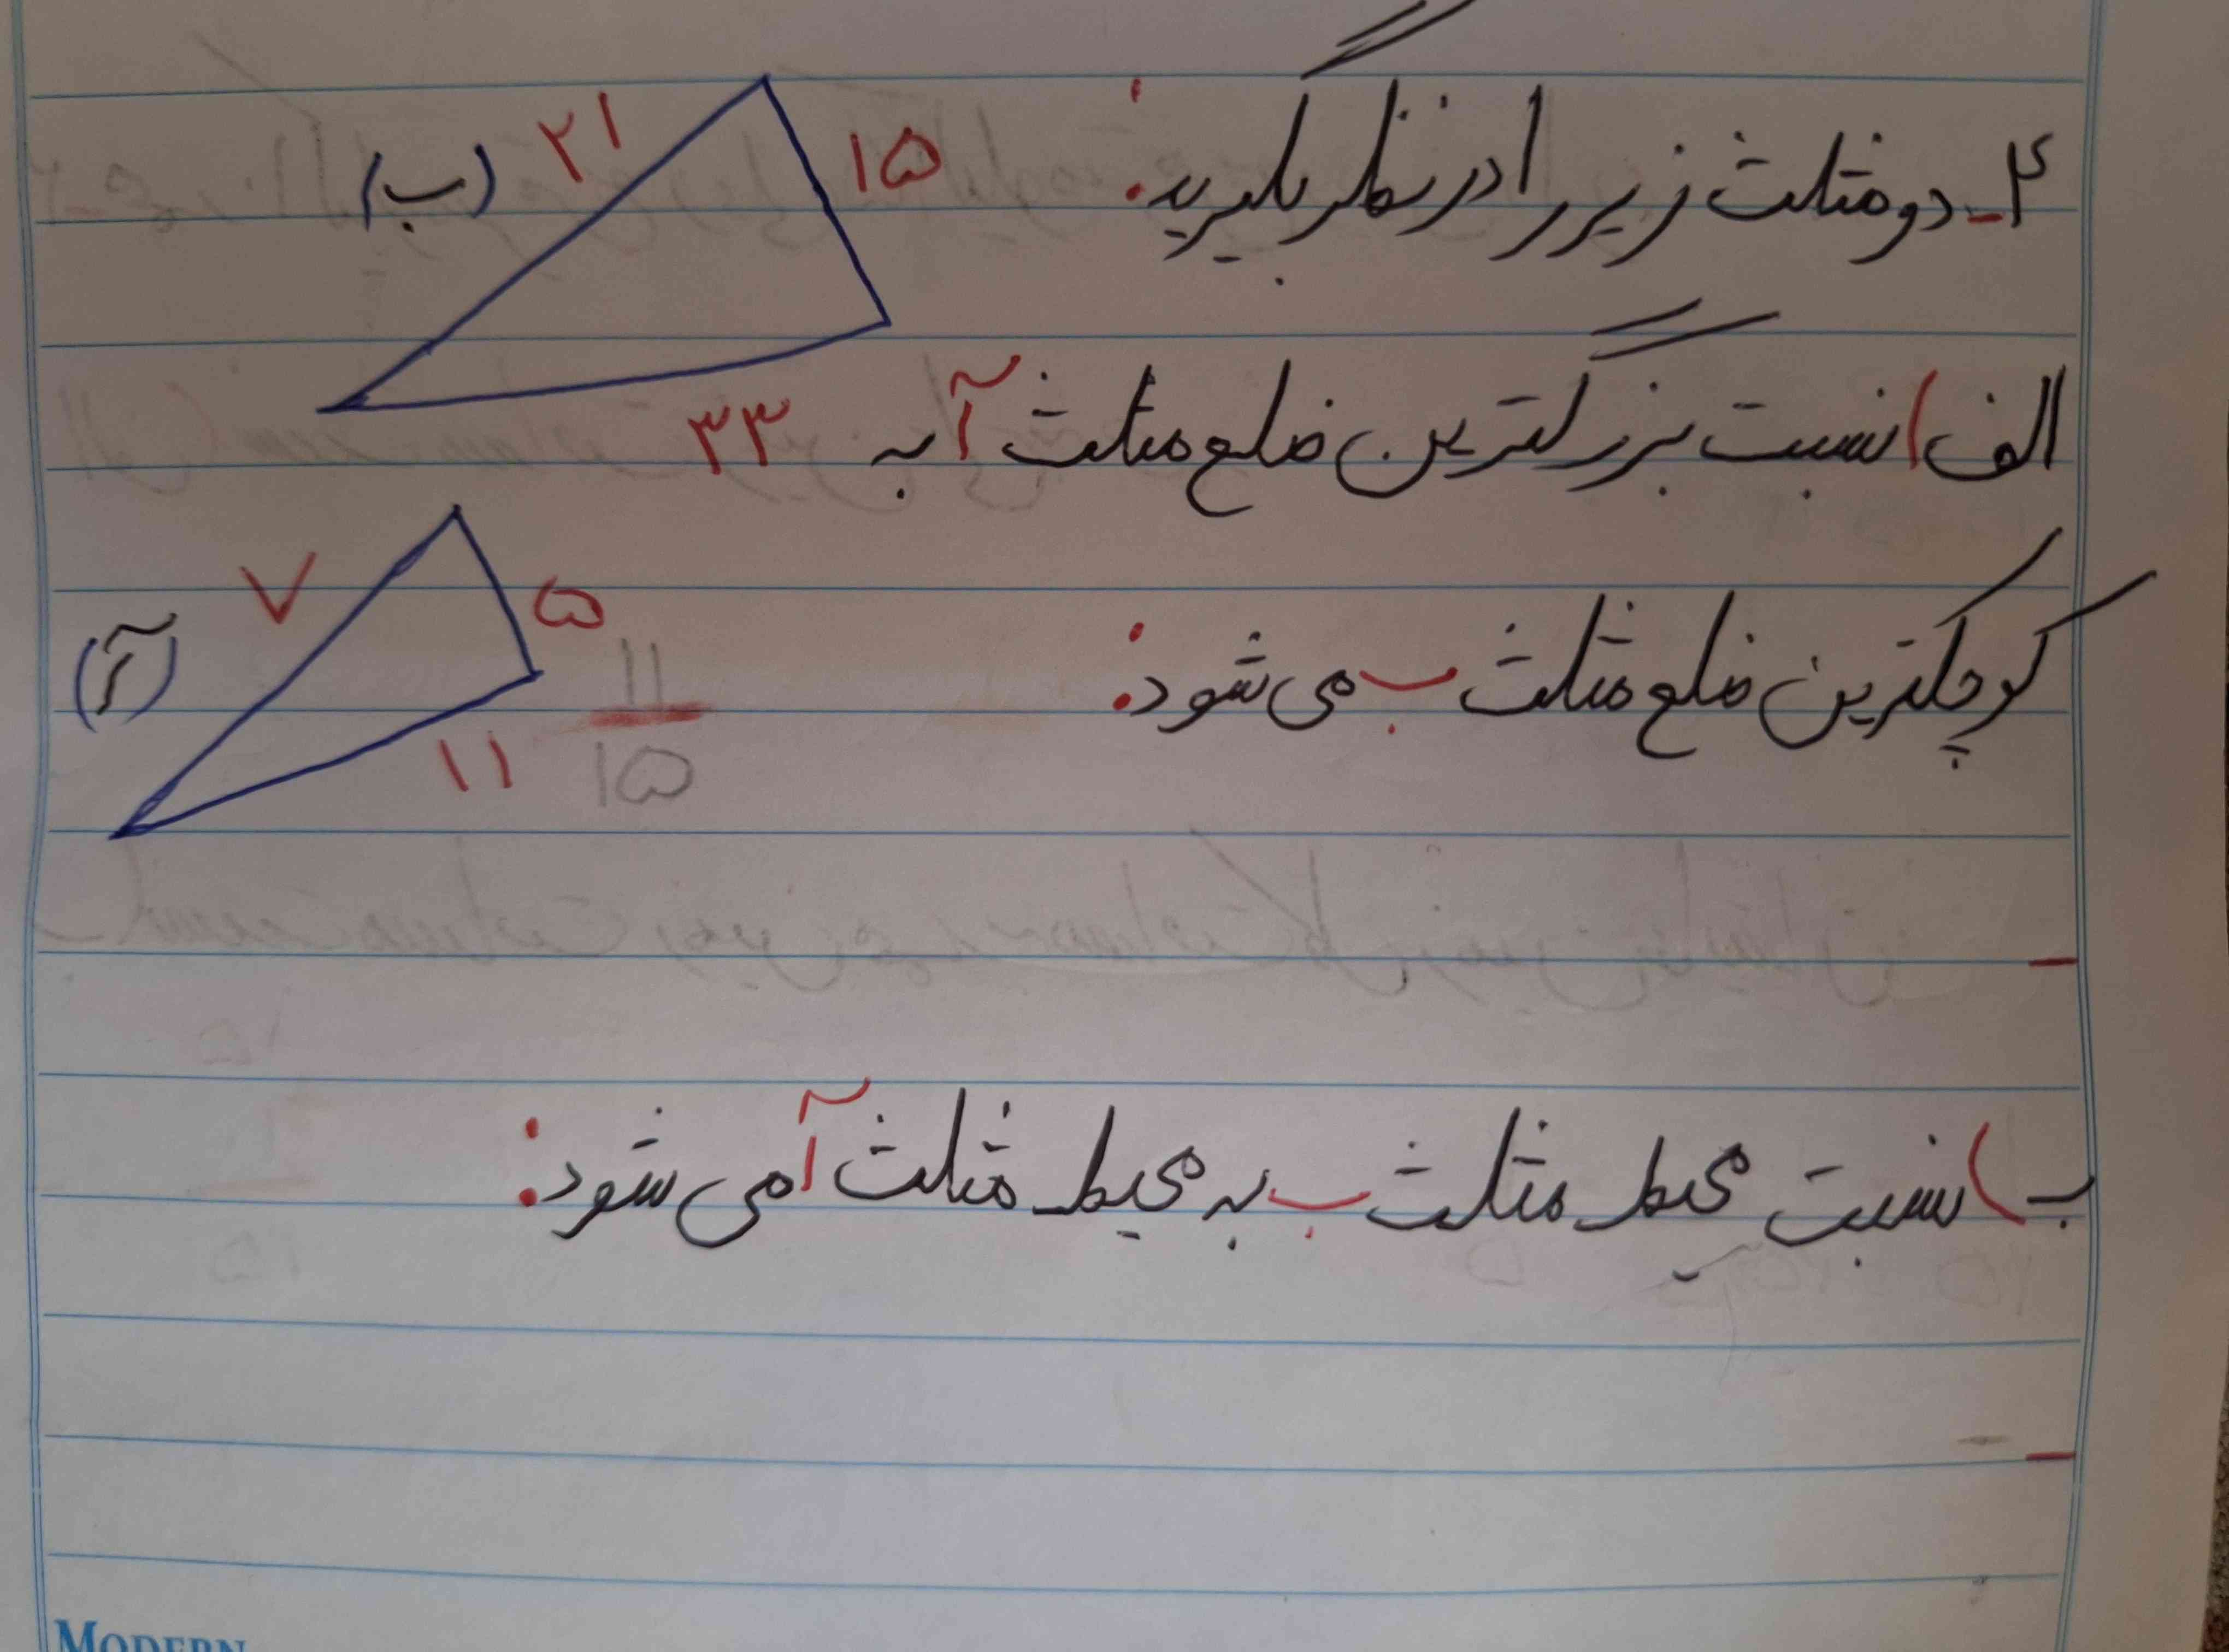 ۴- دو مثلث زیر را در نظر بگیرید:
(ب)
۲۱
۱۵
۳۳
الف) نسبت بزرگترین ضلع مثلث آ به
کوچکترین ضلع مثلث ب می شود:
(آ)
۷
۵
۱۱
۱۱
۱۵
ب) نسبت محیط مثلث ب به محیط مثلث آ می شود:
MODERN